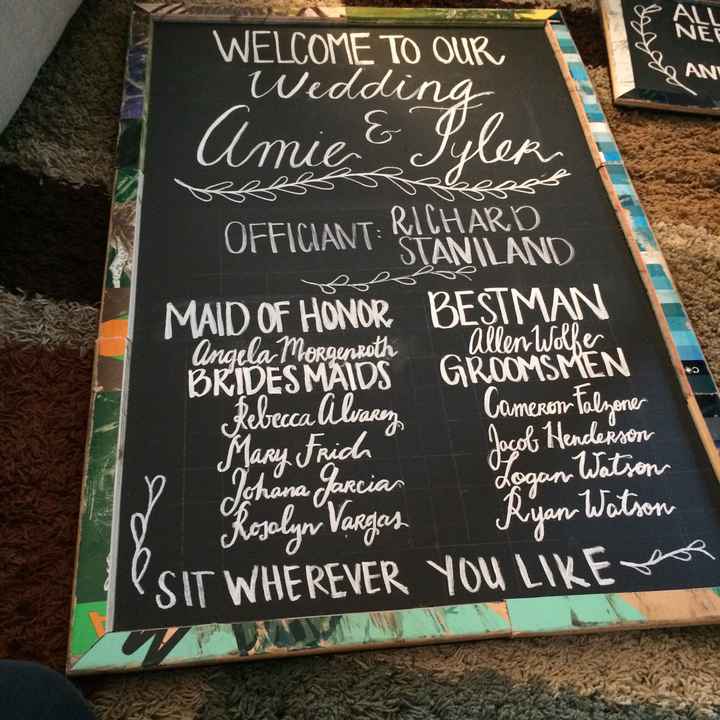 WELCOME TO OUR
Wedding
Amie & Tyler
OFFICIANT: RICHARD
STANILAND
MAID OF HONOR
Angela Morgenroth
BRIDESMAIDS
Rebecca Alvarez
Mary Frich
Johana Garcia
Rosalyn Vargas
BESTMAN
Allen Wolfe
GROOMSMEN
Cameron Falzone
Jacob Henderson
Logan Watson
Ryan Watson
SIT WHEREVER YOU LIKE
ALL
AN